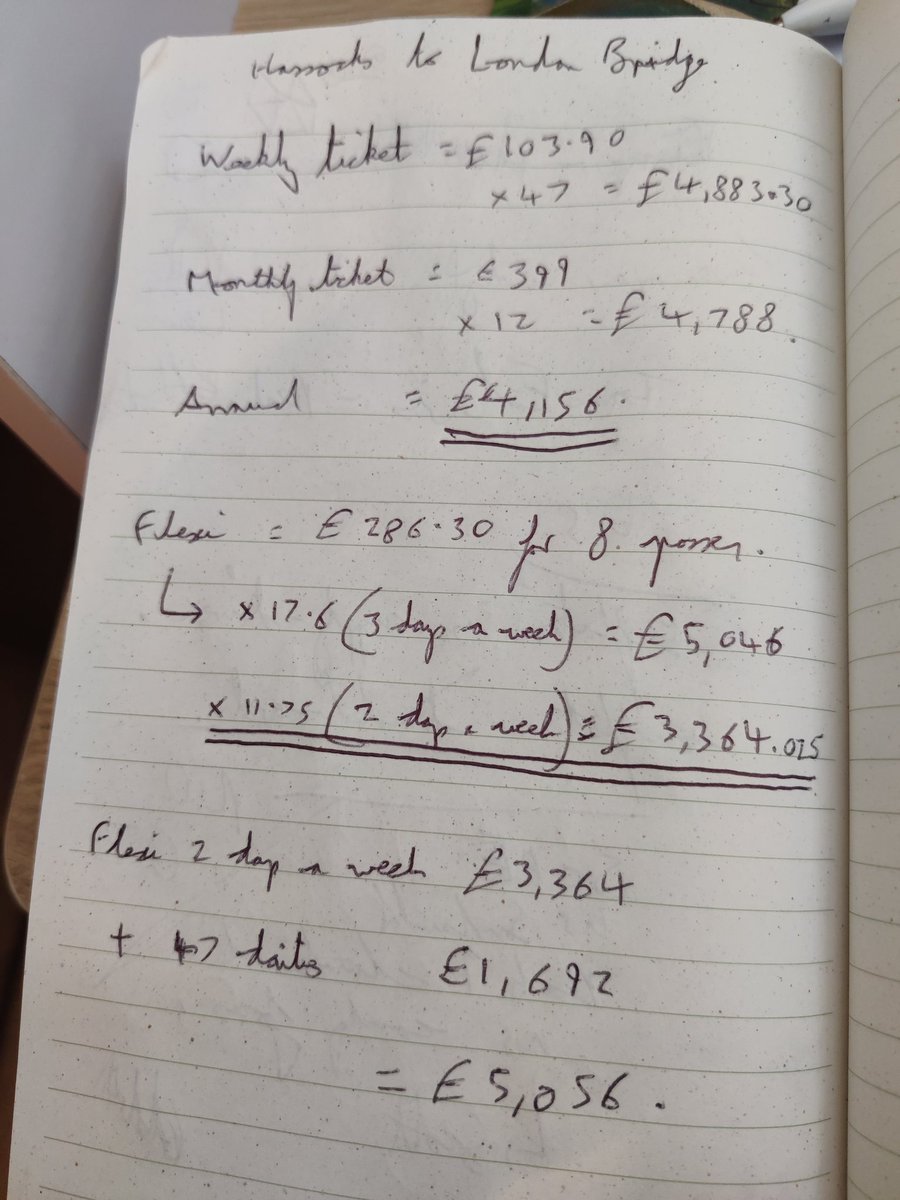 Hassocks to London Bridge
Weekly ticket = £103.90
x 47 = £4,883.30
Monthly ticket = £399
x 12 = £4,788.
Annual = £4,156.
Flexi = £286.30 for 8 passes.
↳ x 17.6 (3 days a week) = £5,046
x 11.75 (2 days a week) = £3,364.025
Flexi 2 days a week £3,364
+ 47 dailys £1,692
= £5,056.